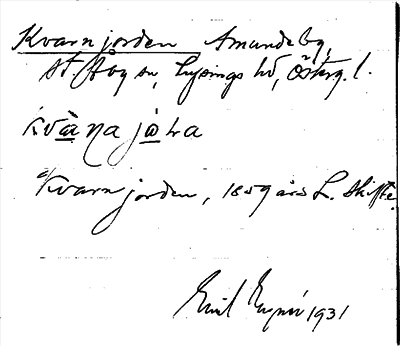 Kvarnjorden Amundeby,
St. Åby sn, Lysings hd, Österg. l.
kvàṇa jàɷa
Kvarnjorden, 1859 års L. skifte.
Emil 1931